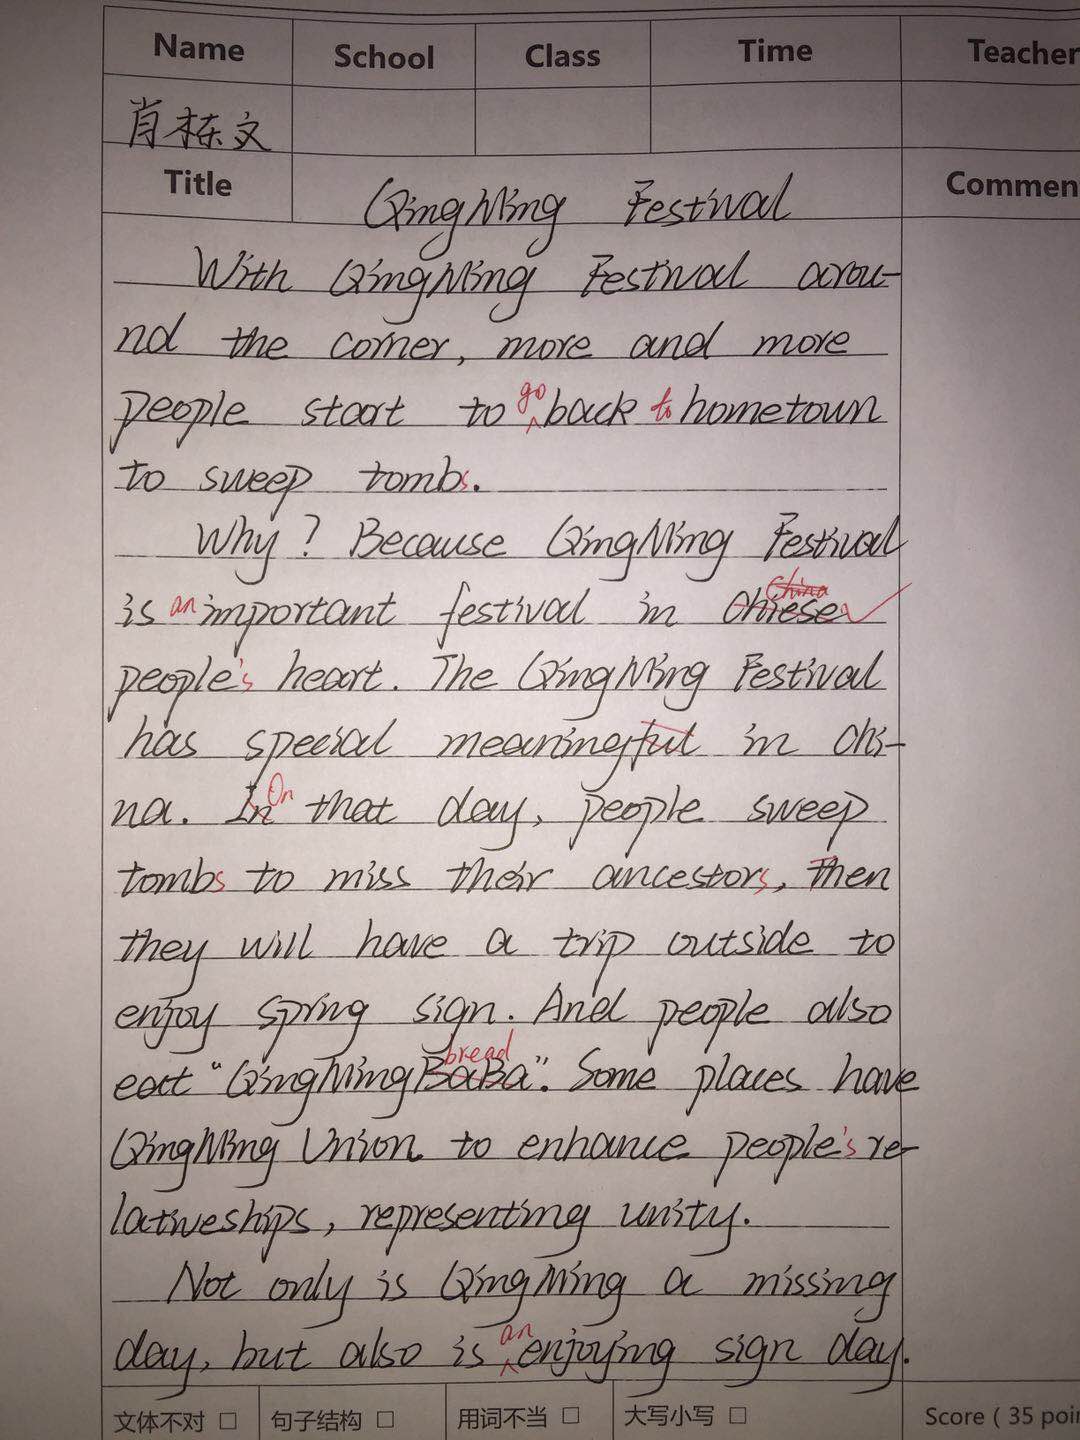 Name School Class Time Teacher
肖栋文
Title QingMing Festival Commen
With QingMing Festival arou-
nd the corner, more and more
people start to go back to hometown
to sweep tombs.
Why? Because QingMing Festival
is an important festival in Chiese China
people's heart. The QingMing Festival
has special meaningful in Chi-
na. In On that day, people sweep
tombs to miss their ancestors, Then
they will have a trip outside to
enjoy spring sign. And people also
eat "QingMingBaBa bread". Some places have
QingMing Union to enhance people's re-
lativeships, representing unity.
Not only is QingMing a missing
day, but also is an enjoying sign day.
文体不对 □ 句子结构 □ 用词不当 □ 大写小写 □ Score ( 35 poin